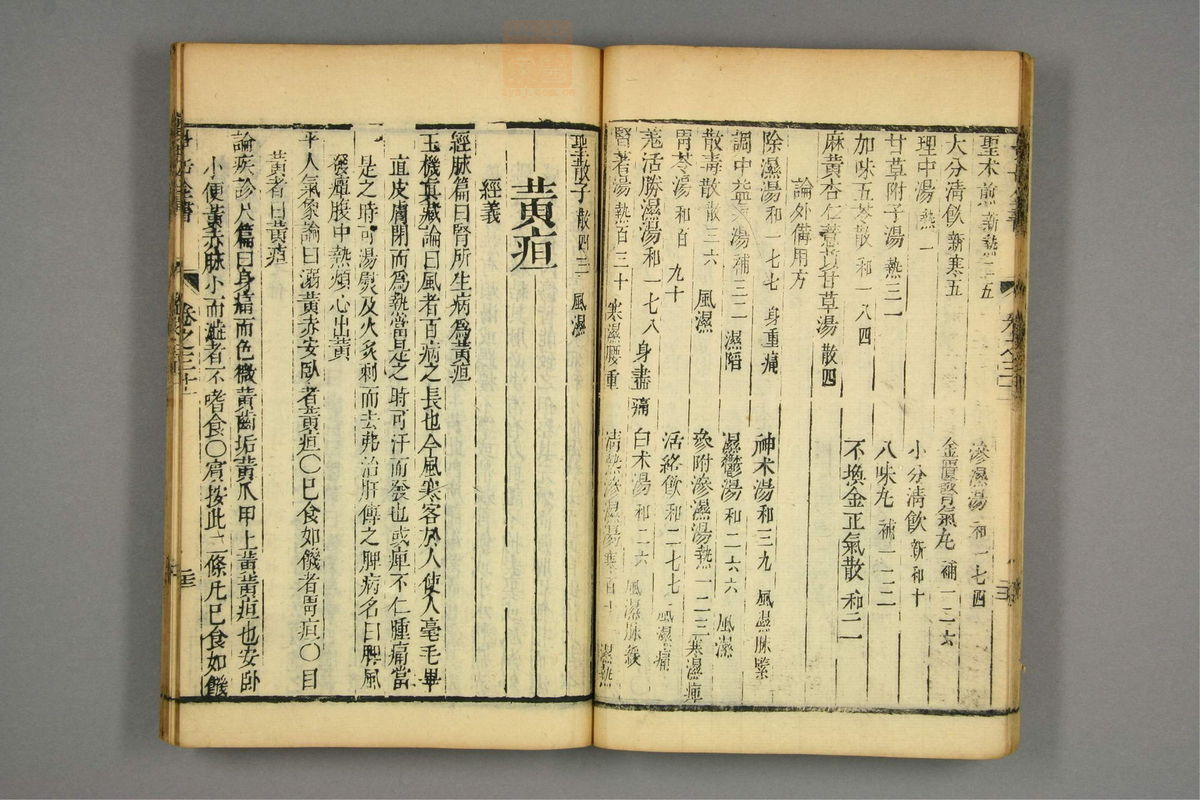 聖术煎 新熱二五
滲濕湯 和一七四
大分清飲 新寒五
金匱腎氣丸 補一二六
理中湯 熱一
小分清飲 新和十
甘草附子湯 熱三一
八味丸 補一二二
加味五苓散 和一八四
不換金正氣散 和二一
麻黃杏仁薏苡甘草湯 散四
論外備用方
除濕湯 和一七七 身重痛
神术湯 和三九 風濕脉緊
調中益氣湯 補三二 濕陷
濕鬱湯 和二六六 風濕
散毒散 散三六 風濕
參附滲濕湯 熱一二三 寒濕痺
胃苓湯 和百九十
活絡飲 和二七七 風濕痛
羌活勝濕湯 和一七八 身盡痛
白术湯 和二六 風濕脉緩
腎著湯 熱百三十 寒濕腰重
清熱滲濕湯 寒百十 濕熱
聖散子 散四三 風濕
黃疸
經義
經脉篇曰腎所生病爲黃疸
玉機真藏論曰風者百病之長也今風寒客於人使人毫毛畢
直皮膚閉而爲熱當是之時可汗而發也或痺不仁腫痛當
是之時可湯熨及火炙刺而去弗治肝傳之脾病名曰脾風
發癉腹中熱煩心出黃
平人氣象論曰溺黃赤安臥者黃疸〇已食如饑者胃疸〇目
黃者曰黃疸
論疾診尺篇曰身痛而色微黃齒垢黃爪甲上黃黃疸也安臥
小便黃赤脉小而濇者不嗜食〇肩按此二條凡已食如饑
卷之三十一